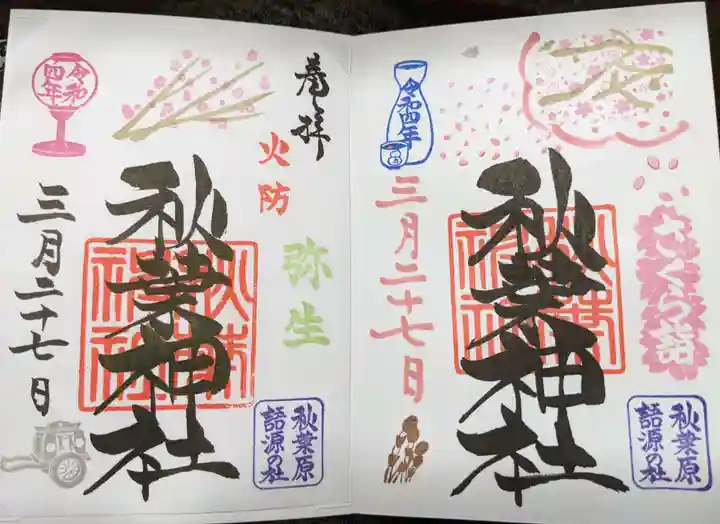 奉拝
火防
弥生
秋葉神社
秋葉神社
秋葉原
語源の社
令和
四年
三月二十七日
さくら詣
秋葉神社
秋葉原
語源の社
令和四年
三月二十七日